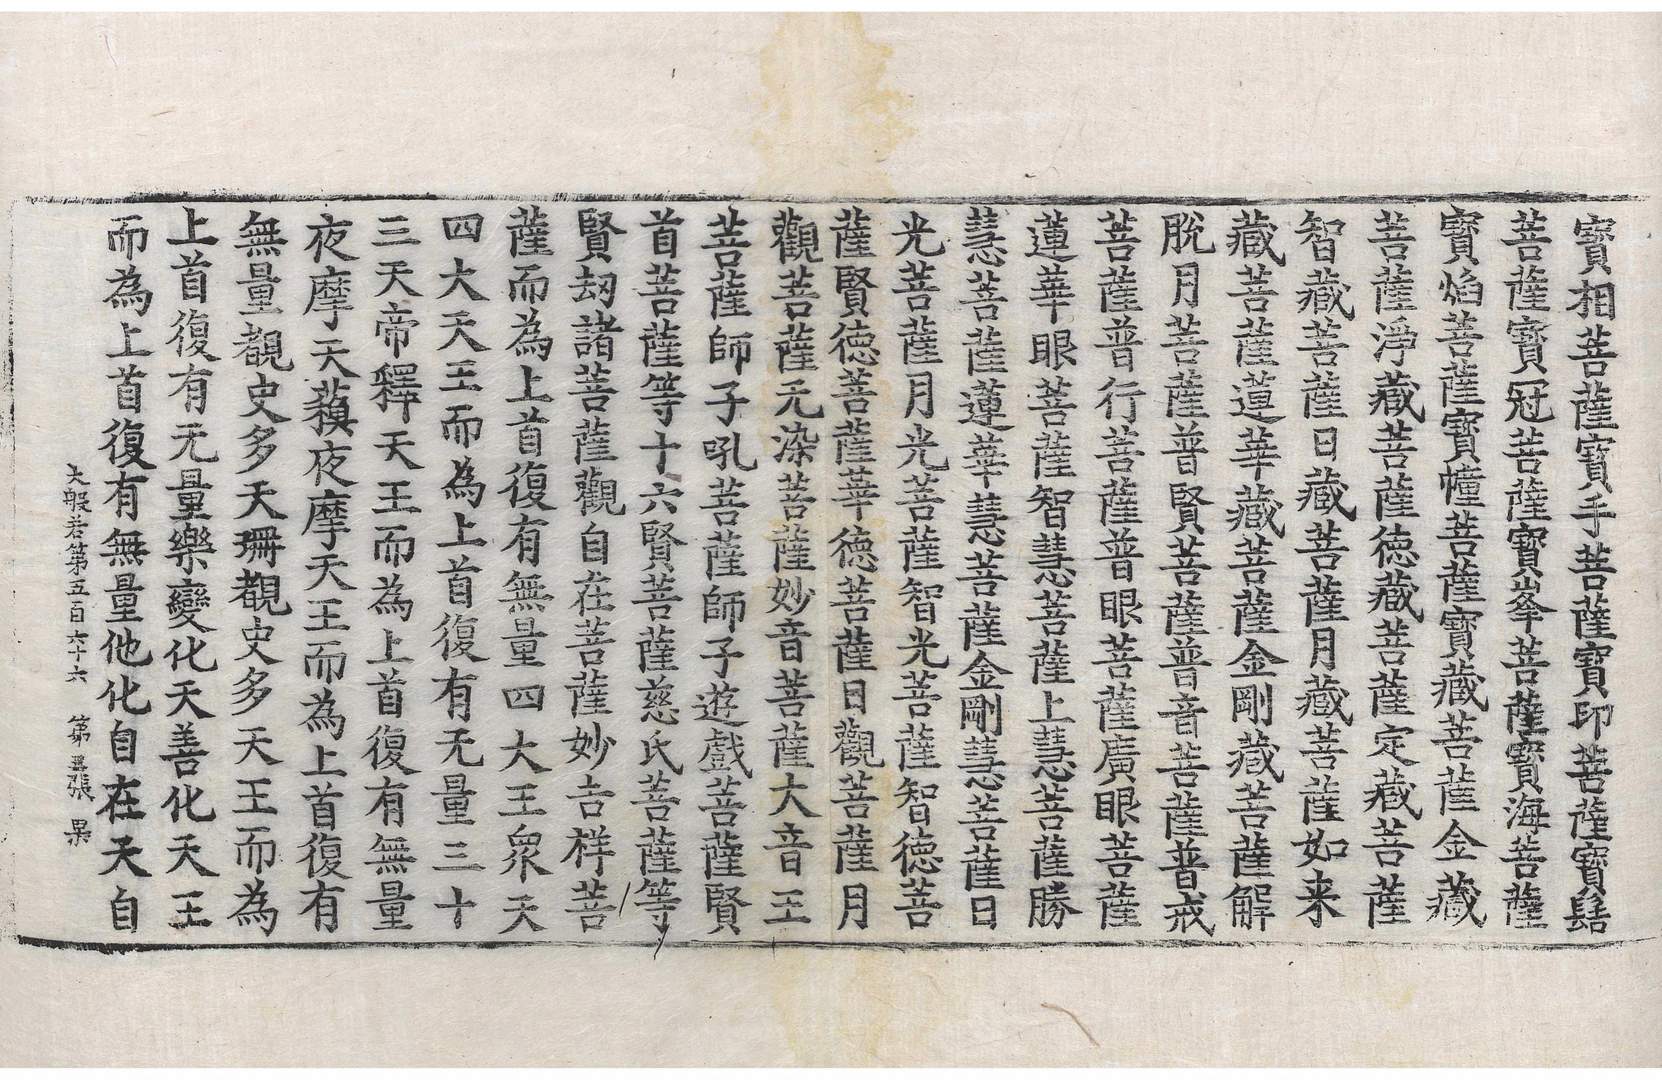 寶相菩薩寶手菩薩寶印菩薩寶髻
菩薩寶冠菩薩寶峯菩薩寶海菩薩
寶焰菩薩寶幢菩薩寶藏菩薩金藏
菩薩淨藏菩薩德藏菩薩定藏菩薩
智藏菩薩日藏菩薩月藏菩薩如来
藏菩薩蓮華藏菩薩金剛藏菩薩解
脫月菩薩普賢菩薩普音菩薩普戒
菩薩普行菩薩普眼菩薩廣眼菩薩
蓮華眼菩薩智慧菩薩上慧菩薩勝
慧菩薩蓮華慧菩薩金剛慧菩薩日
光菩薩月光菩薩智光菩薩智德菩
薩賢德菩薩華德菩薩日觀菩薩月
觀菩薩无染菩薩妙音菩薩大音王
菩薩師子吼菩薩師子遊戲菩薩賢
首菩薩等十六賢菩薩慈氏菩薩等
賢劫諸菩薩觀自在菩薩妙吉祥菩
薩而為上首復有無量四大王眾天
四大天王而為上首復有无量三十
三天帝釋天王而為上首復有無量
夜摩天蘇夜摩天王而為上首復有
無量覩史多天珊覩史多天王而為
上首復有无量樂變化天善化天王
而為上首復有無量他化自在天自
大般若第五百六十六 第張 果